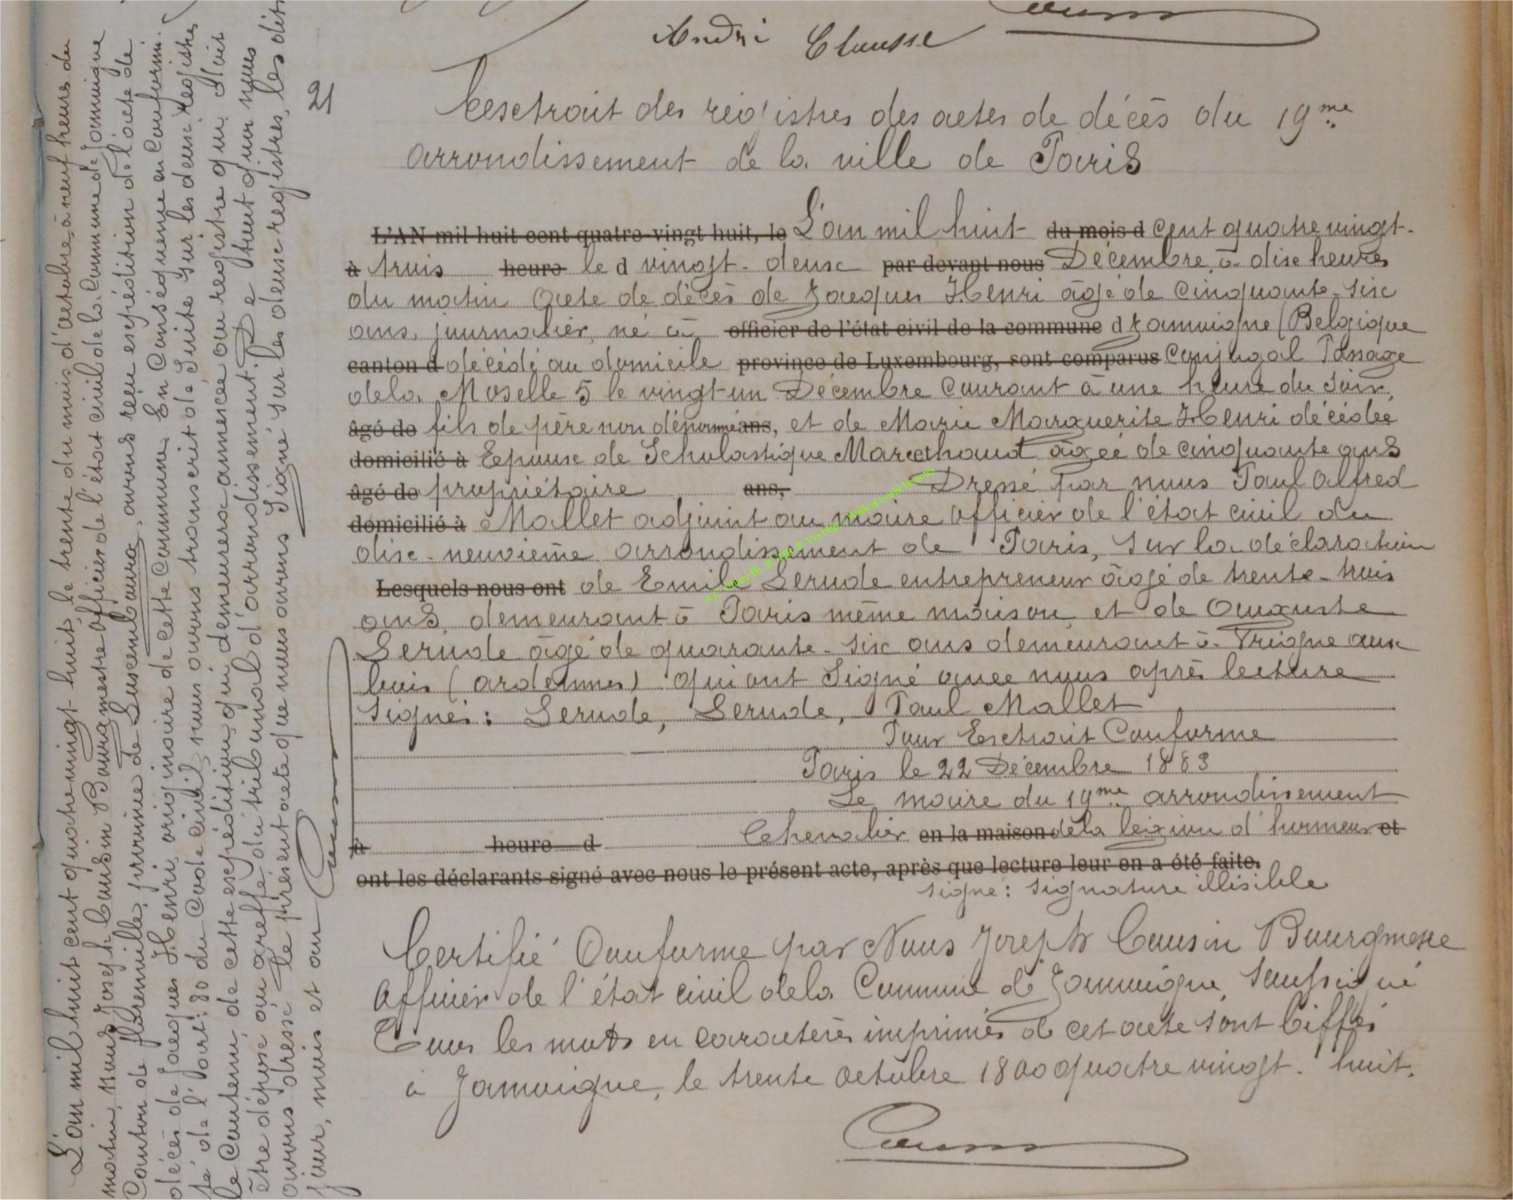 André Clausse
21
L'extrait des registres des actes de décès du 19me
arrondissement de la ville de Paris
L'AN mil huit cent quatre-vingt huit, le L'an mil huit du mois d cent quatre vingt-
à trois heure le d vingt-deux par devant nous Décembre, à dix heures
du matin Acte de décès de Jacques Henri âgé de cinquante-six
ans, journalier, né à officier de l'état civil de la commune d Jamoigne (Belgique
canton d décédé au domicile province de Luxembourg, sont comparus conjugal Passage
de la Moselle 5 le vingt-un Décembre courant à une heure du soir,
âgé de fils de père non dénommé ans, et de Marie Marguerite Henri décédée
domicilié à Epoux de Scholastique Marechaud âgée de cinquante ans
âgé de propriétaire ans, Dressé par nous Paul Alfred
domicilié à Mallet adjoint au maire officier de l'état civil du
dix-neuvième arrondissement de Paris, sur la déclaration
Lesquels nous ont de Emile Lerude entrepreneur âgé de trente-huit
ans, demeurant à Paris même maison, et de Auguste
Lerude âgé de quarante-six ans demeurant à Treigne aux
bois (ardennes) qui ont signé avec nous après lecture
Signés: Lerude, Lerude, Paul Mallet
Pour Extrait Conforme
Paris le 22 Décembre 1883
Le maire du 19me arrondissement
à heure d Chevalier en la maison de la légion d'honneur et
ont les déclarants signé avec nous le présent acte, après que lecture leur en a été faite.
signé: signature illisible
Certifié Conforme par Nous Joseph Cousin Bourgmestre
Officier de l'état civil de la Commune de Jamoigne, soussigné
Tous les mots en caractères imprimés de cet acte sont biffés
à Jamoigne, le trente octobre 1800 quatre vingt-huit.
Cousin
L'an mil huit cent quatre vingt huit, le trente du mois d'octobre, à neuf heures du
matin, Nous Joseph Cousin Bourgmestre officier de l'état civil de la Commune de Jamoigne
Canton de florenville, province de Luxembourg, avons reçu expédition de l'acte de
décès de Jacques Henri, originaire de cette commune. En conséquence en conformi-
té de l'art: 80 du Code civil, nous avons transcrit de suite sur les deux registres
le contenu de cette expédition qui demeurera annexée au registre qui doit
être déposé au greffe du tribunal d'arrondissement. De tout quoi nous
avons dressé le présent acte que nous avons Signé sur les deux registres, les dits
jour, mois et an Cousin